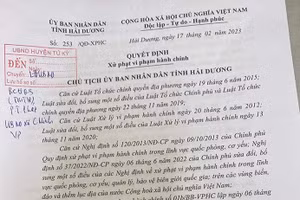 ỦY BAN NHÂN DÂN
TỈNH HẢI DƯƠNG
CỘNG HÒA XÃ HỘI CHỦ NGHĨA VIỆT NAM
Độc lập - Tự do - Hạnh phúc
Số: 253 /QĐ-XPHC
Hải Dương, ngày 17 tháng 02 năm 2023
UBND HUYỆN TỨ KỲ
ĐẾN
Số:
Ngày:
Chuyển:
QUYẾT ĐỊNH
Xử phạt vi phạm hành chính
CHỦ TỊCH ỦY BAN NHÂN DÂN TỈNH HẢI DƯƠNG
Căn cứ Luật Tổ chức chính quyền địa phương ngày 19 tháng 6 năm 2015;
Luật sửa đổi, bổ sung một số điều của Luật Tổ chức Chính phủ và Luật Tổ chức
chính quyền địa phương ngày 22 tháng 11 năm 2019;
Căn cứ Luật Xử lý vi phạm hành chính ngày 20 tháng 6 năm 2012;
Luật sửa đổi, bổ sung một số điều của Luật Xử lý vi phạm hành chính ngày 13
tháng 11 năm 2020;
Căn cứ Nghị định số 120/2013/NĐ-CP ngày 09/10/2013 của Chính phủ
Quy định xử phạt vi phạm hành chính trong lĩnh vực quốc phòng, cơ yếu; Nghị
định số 37/2022/NĐ-CP ngày 06 tháng 6 năm 2022 của Chính phủ sửa đổi, bổ
sung một số điều của các Nghị định về xử phạt vi phạm hành chính trong lĩnh
vực quốc phòng, cơ yếu; quản lý, bảo vệ biên giới quốc gia; trên các vùng biển,
đảo và thềm lục địa của nước Cộng hoà xã hội chủ nghĩa Việt Nam;
/BB-VPHC lập ngày 06 tháng